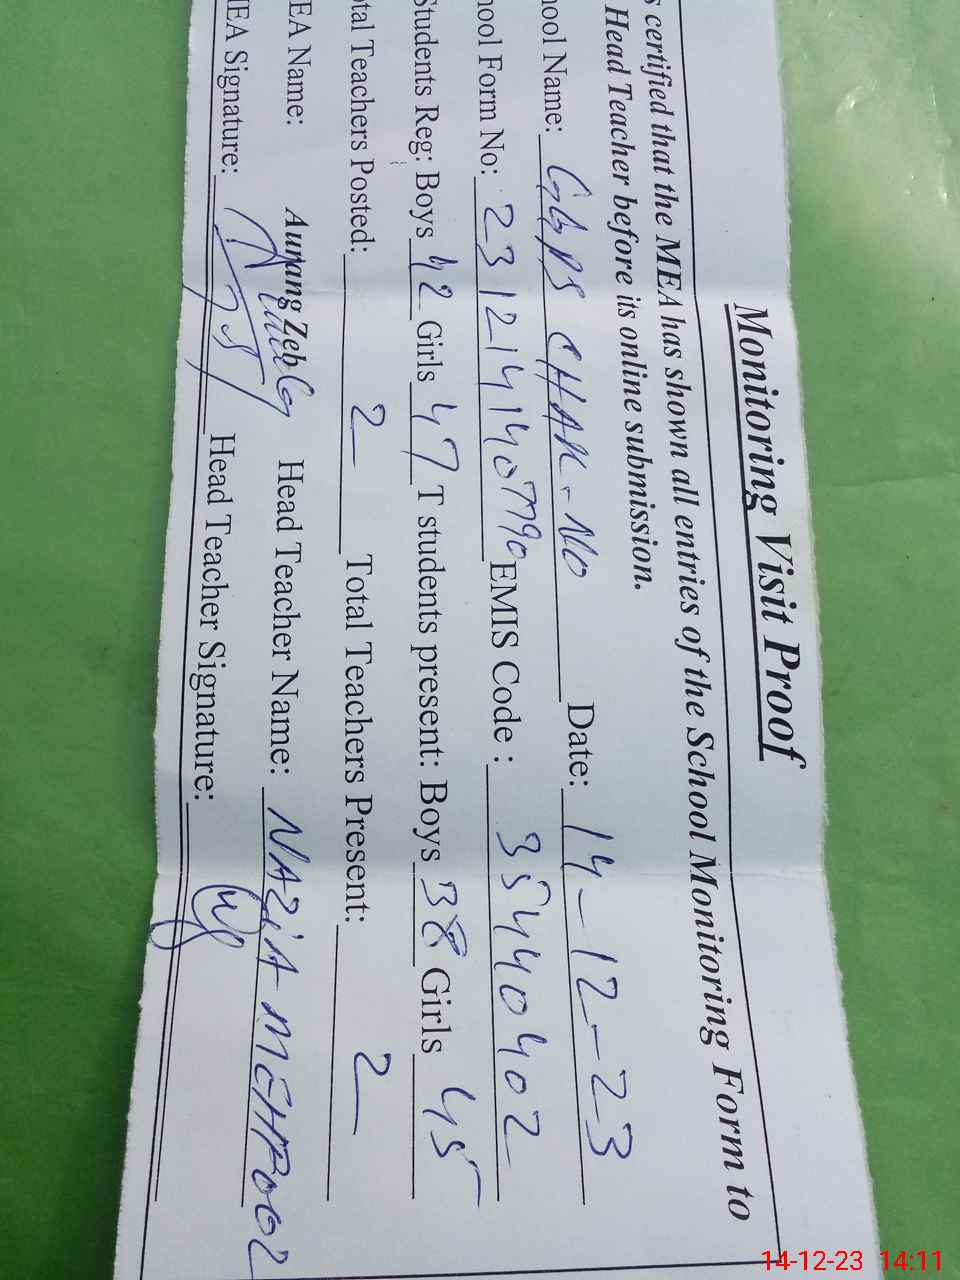 Monitoring Visit Proof
s certified that the MEA has shown all entries of the School Monitoring Form to
Head Teacher before its online submission.
hool Name: GGPS CHAK-NO Date: 14-12-23
hool Form No: 231214140790 EMIS Code : 35440402
Students Reg: Boys 42 Girls 47 T students present: Boys 38 Girls 45
tal Teachers Posted: 2 Total Teachers Present: 2
EA Name: Aurang Zeb Head Teacher Name: NAZiA
IEA Signature: Head Teacher Signature:
14-12-23 14:11